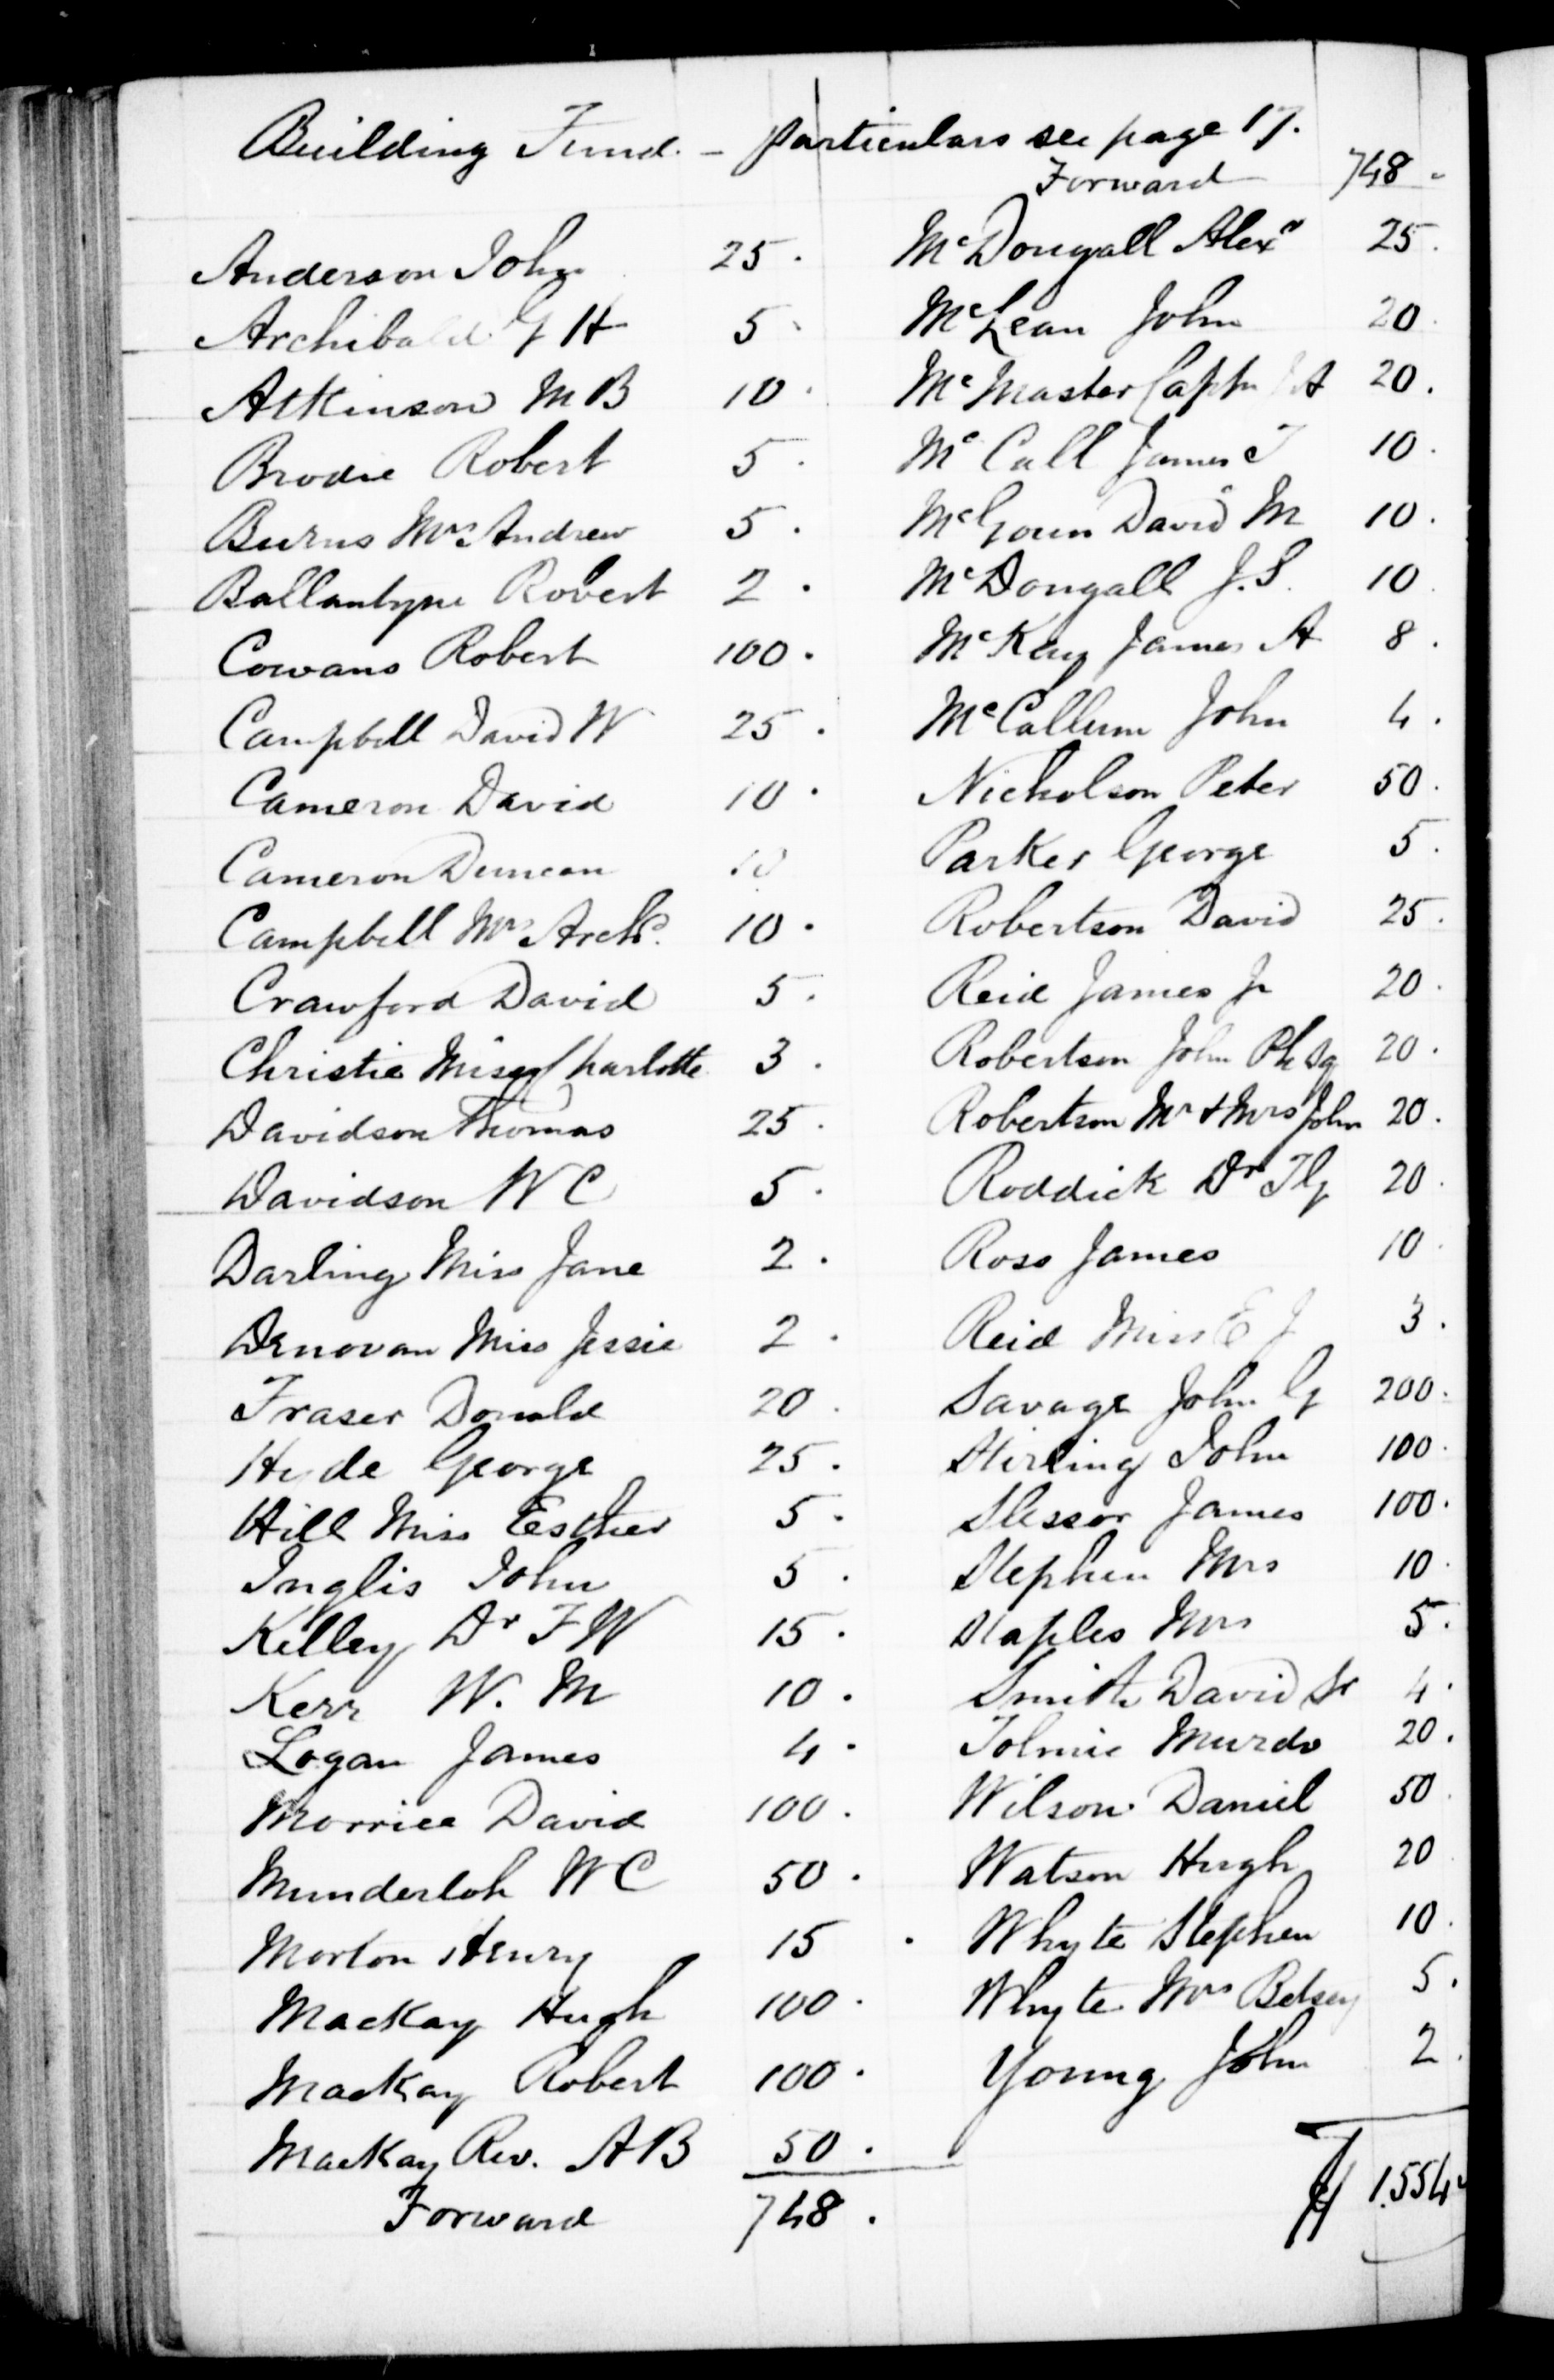 Building Fund. - particulars see page 17.
Anderson John 25.
Archibald G H 5.
Atkinson M B 10.
Brodie Robert 5.
Burns Mrs Andrew 5.
Ballantyne Robert 2.
Cowans Robert 100.
Campbell David W 25.
Cameron David 10.
Cameron Duncan 10
Campbell Mrs Archd. 10.
Crawford David 5.
Christie Miss Charlotte 3.
Davidson Thomas 25.
Davidson W C 5.
Darling Miss Jane 2.
Denovan Miss Jessie 2.
Fraser Donald 20.
Hyde George 25.
Hill Miss Esther 5.
Inglis John 5.
Kelley Dr F W 15.
Kerr W. M 10.
Logan James 4.
Morrice David 100.
Munderloh W C 50.
Morton Henry 15.
MacKay Hugh 100.
MacKay Robert 100.
MacKay Rev. A B 50.
Forward 748.
Forward 748.
McDougall Alexr 25.
McLean John 20.
McMaster Captn A 20.
McCall James T 10.
McGoun David M 10.
McDougall J. S. 10.
McKay James A 8.
McCallum John 4.
Nicholson Peter 50.
Parker George 5.
Robertson David 25.
Reid James Jr 20.
Robertson John Ph Sq 20.
Robertson Mr & Mrs John 20.
Roddick Dr T G 20.
Ross James 10.
Reid Miss E J 3.
Savage John G 200.
Stirling John 100.
Slessor James 100.
Stephen Mrs 10.
Staples Mrs 5.
Smith David Sr 4.
Tolmie Murdo 20.
Wilson Daniel 50.
Watson Hugh 20
Whyte Stephen 10.
Whyte Mrs Betsey 5.
Young John 2.
$1.554